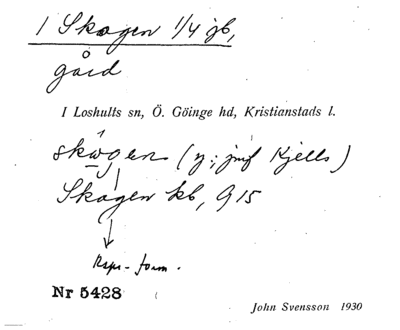 1 Skogen 1/4 jb,
gård
I Loshults sn, Ö. Göinge hd, Kristianstads l.
skωgen (y; jmf Kjells)
Skogen kb, G 15
↓
Rspr-form.
Nr 5428
John Svensson 1930